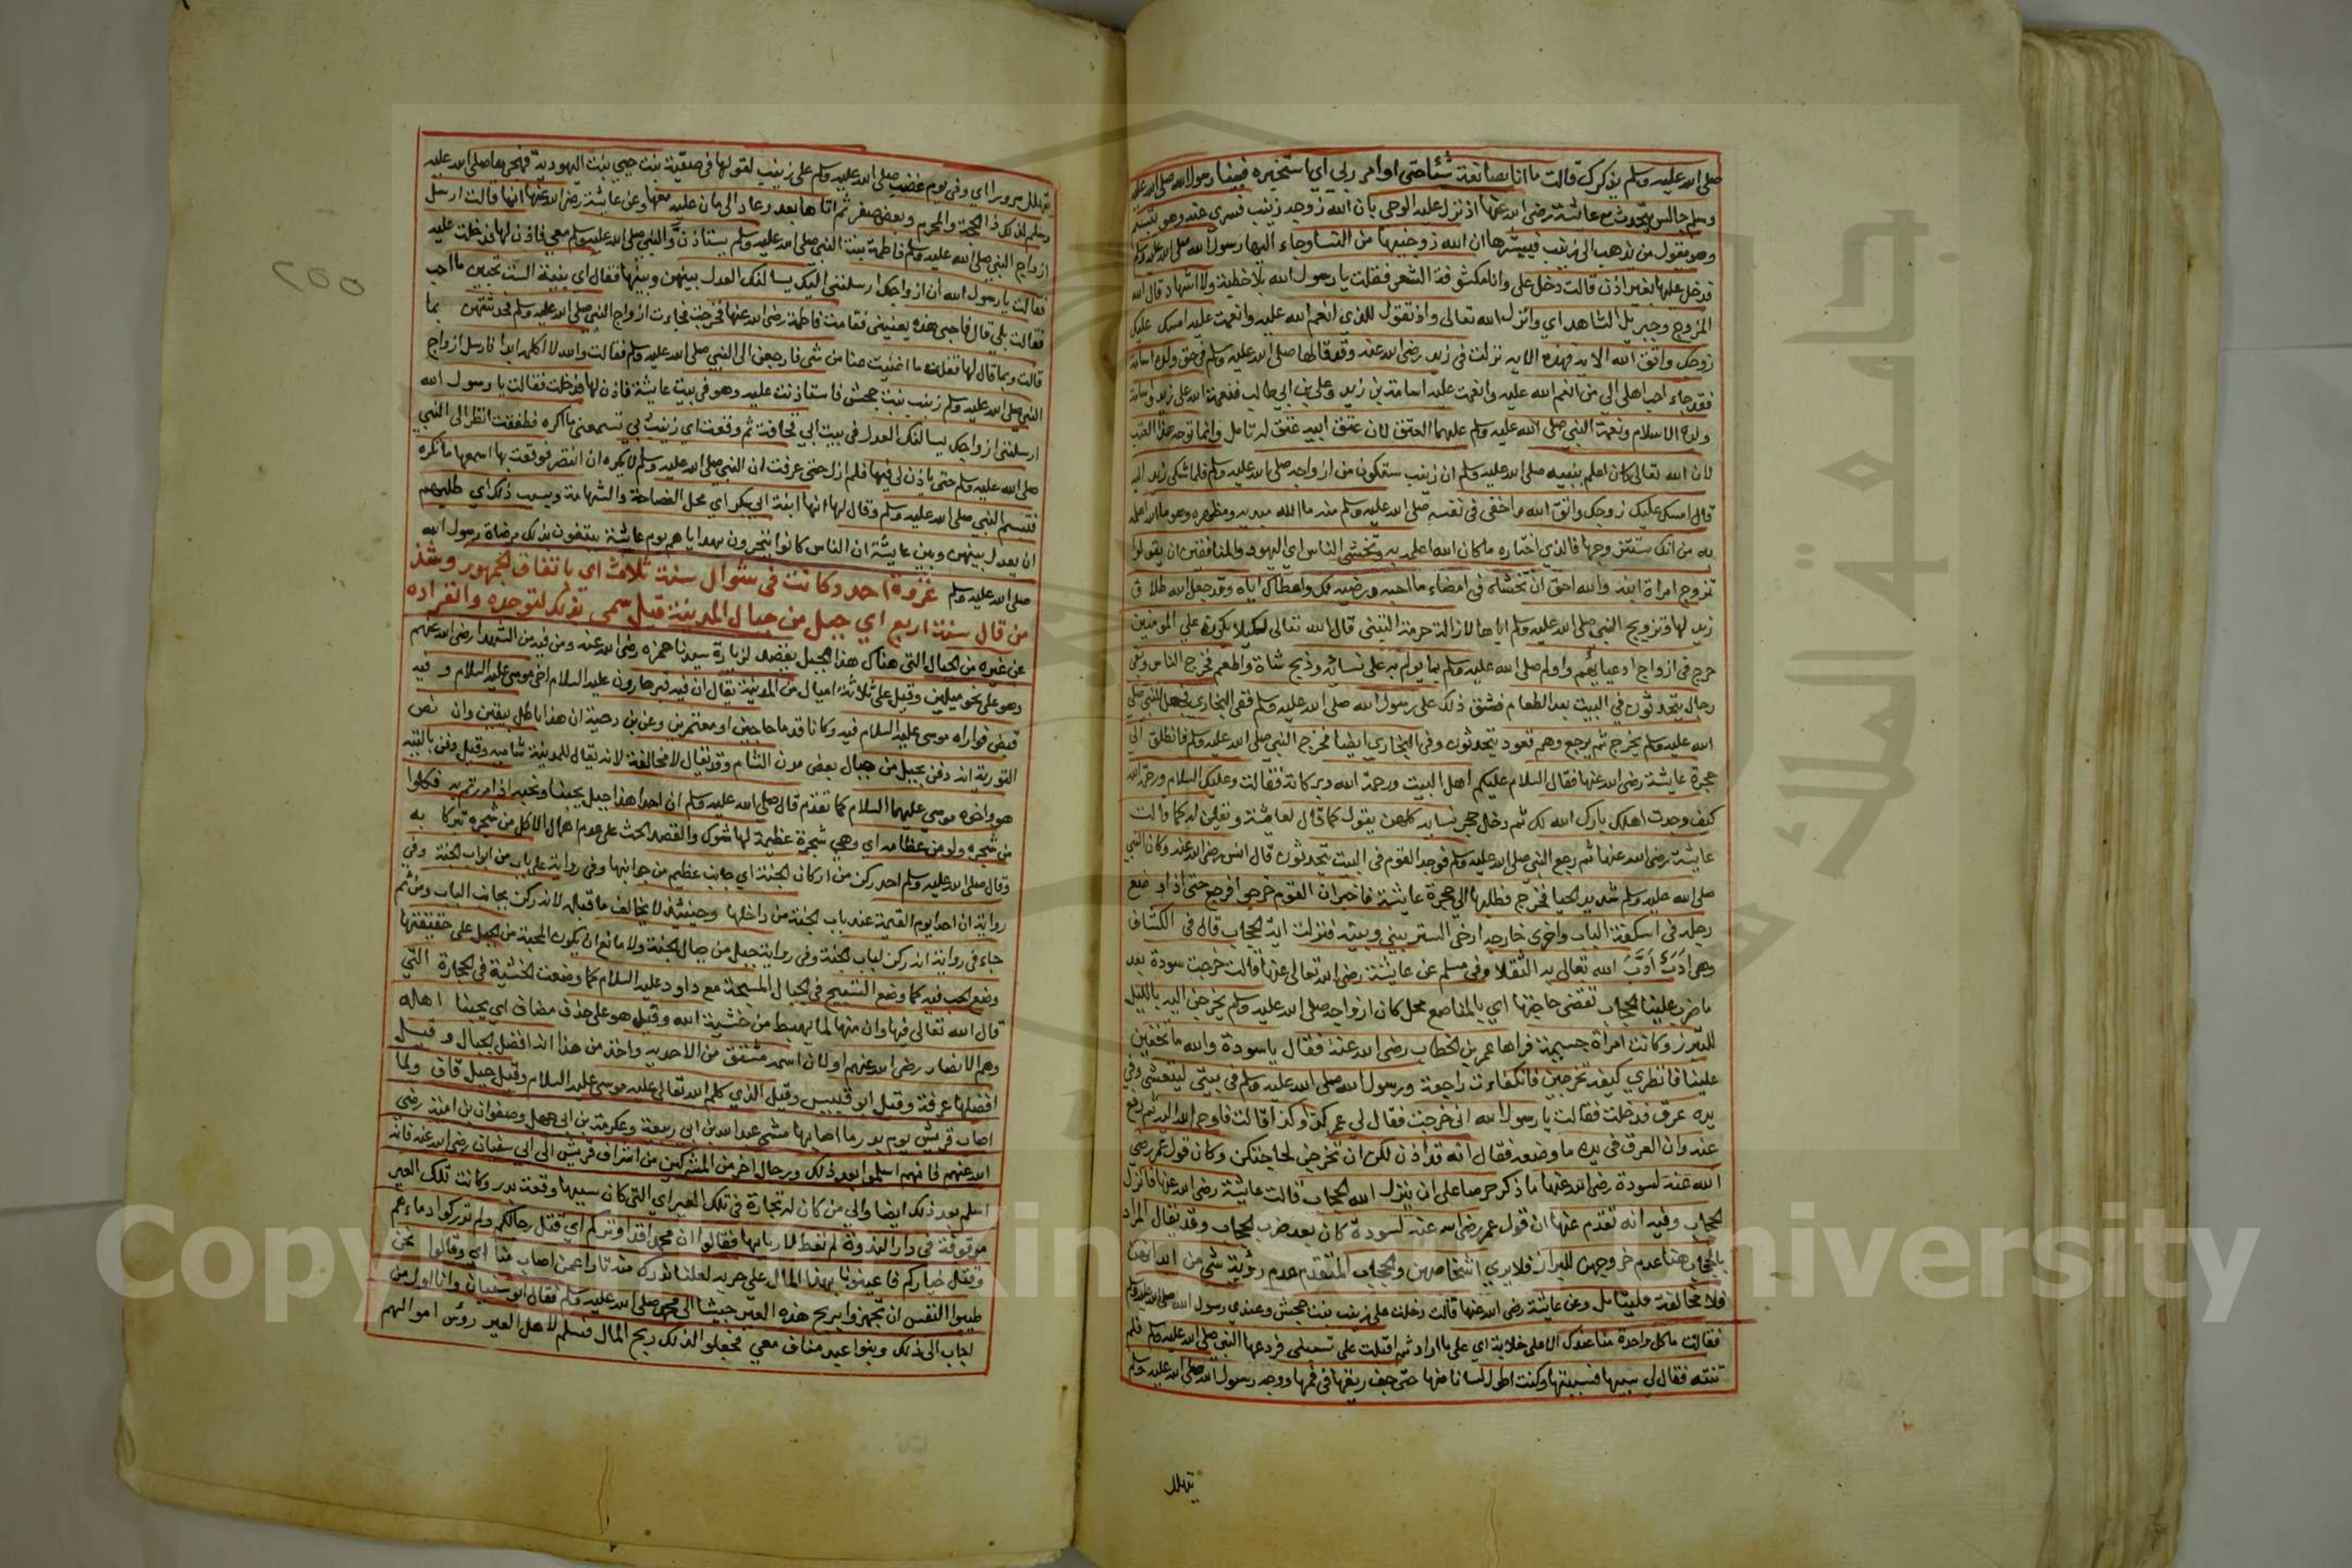 صلى الله عليه وسلم يذكرك قالت ما انا بصانعة شئا حتى اوامر ربي اي استخيره فبينا رسول الله صلى الله عليه
وسلم جالس يتحدث مع عائشة رضى الله عنها اذ نزل عليه الوحي بان الله زوجه زينب فسري عنه وهو يتبسم
وهو يقول من يذهب الى زينب فيبشرها ان الله زوجنيها من السما وجاء اليها رسول الله صلى الله عليه وسلم
فدخل عليها بغير اذن قالت دخل على وانا مكشوفة الشعر فقلت يا رسول الله بلا خطبة ولا اشهاد قال الله
المزوج وجبريل الشاهد اي وانزل الله تعالى واذ تقول للذي انعم الله عليه وانعمت عليه امسك عليك
زوجك واتق الله الاية فهذه الاية نزلت في زيد رضى الله عنه وقد قالها صلى الله عليه وسلم في حق ولده اسامة
فقد جاء احب اهلي الي من انعم الله عليه وانعمت عليه اسامة بن زيد وعلى بن ابي طالب فنعمة الله على زيد واسامة
ولده الاسلام ونعمة النبي صلى الله عليه وسلم عليهما العتق لان عتق ابيه عتق له تامل وانما توجه هذا العتب
لان الله تعالى كان اعلم نبيه صلى الله عليه وسلم ان زينب ستكون من ازواجه صلى الله عليه وسلم فلما شكى زيد اليه
قال امسك عليك زوجك واتق الله واخفى في نفسه صلى الله عليه وسلم منه ما الله مبديه ومظهره وهو ما اعلمه
به من انك ستتزوجها فالذي اخفاه ما كان الله اعلمه به وتخشى الناس اي اليهود والمنافقين ان يقولوا
تزوج امراة ابنه والله احق ان تخشاه في امضاء ما احبه ورضيه لك واعطاك اياه وقد جعل الله طلاق
زيد لها وتزويج النبي صلى الله عليه وسلم اياها لازالة حرمة التبني قال الله تعالى لكيلا يكون على المومنين
حرج في ازواج ادعيائهم واولم صلى الله عليه وسلم بما يولم به على نسائه وذبح شاة واطعم فخرج الناس وبقي
رجال يتحدثون في البيت بعد الطعام فشق ذلك على رسول الله صلى الله عليه وسلم ففى البخاري فجعل النبي صلى
الله عليه وسلم يخرج ثم يرجع وهم قعود يتحدثون وفى البخاري ايضا فخرج النبي صلى الله عليه وسلم فانطلق الى
حجرة عايشة رضى الله عنها فقال السلام عليكم اهل البيت ورحمة الله وبركاته فقالت وعليك السلام ورحمة الله
كيف وجدت اهلك بارك الله لك ثم دخل حجر نسايه كلهن يقول كما قال لعايشة ويقلن له كما قالت
عايشة رضى الله عنها ثم رجع النبي صلى الله عليه وسلم فوجد القوم في البيت يتحدثون قال انس رضى الله عنه وكان النبي
صلى الله عليه وسلم شديد الحيا فخرج فطلبها الى حجرة عايشة فاخبر ان القوم خرجوا فرجع حتى اذا وضع
رجله في اسكفة الباب واخرى خارجه ارخى الستر بيني وبينه فنزلت اية الحجاب قال فى الكشاف
وهى ادب ادب الله تعالى به الثقلا وفى مسلم عن عايشة رضى الله تعالى عنها قالت خرجت سودة بعد
ما ضرب علينا الحجاب تقضى حاجتها اي بالمناصع محل كان ازواجه صلى الله عليه وسلم يخرجن اليه بالليل
للتبرز وكانت امرأة جسيمة فراها عمر بن الخطاب رضى الله عنه فقال يا سودة والله ما تخفين
علينا فانظري كيف تخرجين فانكفات راجعة ورسول الله صلى الله عليه وسلم في بيتى ليتعشى وفي
يده عرق فدخلت فقالت يا رسول الله انى خرجت فقال لي عمر كذا وكذا قالت فاوحى الله اليه ثم رفع
عنه وان العرق في يده ما وضعه فقال انه قد اذن لكن ان تخرجن لحاجتكن وكان قول عمر رضي
الله عنه لسودة رضى الله عنها ما ذكر حرصا على ان ينزل الله الحجاب قالت عايشة رضى الله عنها فانزل
الحجاب وفيه انه تقدم عنها ان قول عمر رضى الله عنه لسودة كان بعد ضرب الحجاب وقد يقال المراد
بالحجاب هنا عدم خروجهن للبراز فلا يرى اشخاصهن والحجاب المتقدم عدم رؤية شي من ابدانهن
فلا مخالفة فليتامل وعن عايشة رضى الله عنها قالت دخلت على زينب بنت جحش وعندي رسول الله صلى الله عليه وسلم
فقالت ما كل واحدة منا عندك الا على خلابة اي على ما اراد ثم اقبلت على تسبنى فردعها النبي صلى الله عليه وسلم فلم
تنته فقال لى سبيها فسببتها وكنت اطول لسانا منها حتى جف ريقها في فمها ووجه رسول الله صلى الله عليه وسلم
يتهلل
٢٥٥
يتهلل سرورا اي وفى يوم غضب صلى الله عليه وسلم على زينب لقولها فى صفية بنت حيي بنت اليهودية فهجرها صلى الله عليه
وسلم لذلك ذا الحجة والمحرم وبعض صفر ثم اتاها بعد وعاد الى ما كان عليه معها وعن عايشة رضى الله عنها انها قالت ارسل
ازواج النبي صلى الله عليه وسلم فاطمة بنت النبي صلى الله عليه وسلم يستاذن والنبي صلى الله عليه وسلم معي فاذن لها فدخلت عليه
فقالت يا رسول الله ان ازواجك ارسلننى اليك يسالنك العدل بينهن وبينها فقال اي بنية الست تحبين ما احب
فقالت بلى قال فاحبي هذه يعنينى فقامت فاطمة رضى الله عنها فخرجت فجاءت ازواج النبي صلى الله عليه وسلم فحدثتهن بما
قالت وبما قال لها فقلن ما اغنيت عنا من شي فارجعي الى النبي صلى الله عليه وسلم فقالت والله لا اكلمه ابدا فارسل ازواج
النبي صلى الله عليه وسلم زينب بنت جحش فاستاذنت عليه وهو في بيت عايشة فاذن لها فدخلت فقالت يا رسول الله
ارسلننى ازواجك يسالنك العدل في بنت ابي قحافة ثم وقعت اي زينب بي تسمعنى ما اكره فطفقت انظر الى النبي
صلى الله عليه وسلم حتى ياذن لي فيها فلم ازل حتى عرفت ان النبي صلى الله عليه وسلم لا يكره ان انتصر فوقعت بها اسمعها ما تكره
فتبسم النبي صلى الله عليه وسلم وقال لها انها ابنة ابي بكر اي محل الفصاحة والشهامة وسبب ذلك اي طلبهم
ان يعدل بينهن وبين عايشة ان الناس كانوا يتحرون بهداياهم يوم عائشة يبتغون بذلك مرضاة رسول الله
صلى الله عليه وسلم غزوة احد وكانت في شوال سنة ثلاث اي باتفاق الجمهور وشذ
من قال سنة اربع اي جبل من جبال المدينة قيل سمى بذلك لتوحده وانفراده
عن غيره من الجبال التى هناك هذا الجبل يقصد لزيارة سيدنا حمزه رضى الله عنه ومن فيه من الشهدا رضى الله عنهم
وهو على نحو ميلين وقيل على ثلاثة اميال من المدينة يقال ان فيه قبر هارون عليه السلام اخى موسى عليه السلام وفيه
قبض فواراه موسى عليه السلام فيه وكانا قدما حاجين او معتمرين وعن بن دحية ان هذا باطل بيقين وان نص
التورية انه دفن بجبل من جبال بعض مدن الشام وقد يقال لا مخالفة لانه يقال للمدينة شامية وقيل دفن بالتيه
هو واخوه موسى عليهما السلام كما تقدم قال صلى الله عليه وسلم ان احدا هذا جبل يحبنا ونحبه اذا مررتم به فكلوا
من شجره ولو من عظاهه اي وهي شجرة عظيمة لها شوك والقصد الحث على عدم اهمال الاكل من شجره تبركا به
وقال صلى الله عليه وسلم احد ركن من اركان الجنة اي جانب عظيم من جوانبها وفى رواية على باب من ابواب الجنة وفي
رواية ان احدا يوم القيمة عند باب الجنة من داخلها وحينئذ لا يخالف ما قبله لانه ركن بجانب الباب ومن ثم
جاء فى رواية انه ركن لباب الجنة وفى رواية جبل من جبال الجنة ولا مانع ان يكون المحبة من الجبل على حقيقتها
وضع الحب فيه كما وضع التسبيح في الجبال المسبحة مع داود عليه السلام كما وضعت الخشية في الحجارة التي
قال الله تعالى فيها وان منها لما يهبط من خشية الله وقيل هو على حذف مضاف اي يحبنا اهله
وهم الانصار رضى الله عنهم او لان اسمه مشتق من الاحدية واخذ من هذا انه افضل الجبال وقيل
افضلها عرفة وقيل ابو قبيس وقيل الذي كلم الله تعالى عليه موسى عليه السلام وقيل جبل قاف ولما
اصاب قريش يوم بدر ما اصابها مشى عبد الله بن ابي ربيعة وعكرمة بن ابي جهل وصفوان بن امية رضى
الله عنهم فانهم اسلموا بعد ذلك ورجال اخر من المشركين من اشراف قريش الى ابي سفيان رضى الله عنه فانه
اسلم بعد ذلك ايضا والى من كان له تجارة في تلك العير اي التى كان سببها وقعة بدر وكانت تلك العير
موقوفة في دار الندوة لم تعط لاربابها فقالوا ان محمدا قد وتركم اي قتل رجالكم ولم تدركوا دماءهم
وقتل خياركم فاعينونا بهذا المال على حربه لعلنا ندرك منه ثارا عمن اصاب منا اي وقالوا نحن
طيبوا النفس ان تجهزوا بربح هذه العير جيشا الى محمد صلى الله عليه وسلم فقال ابو سفيان وانا اول من
اجاب الى ذلك وبنوا عبد مناف معى فجعلوا لذلك ربح المال فسلم لاهل العير رؤس اموالهم
Copyright © King Saud University
جامعة الملك سعود